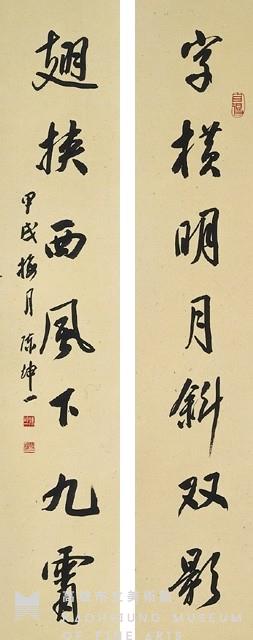 字橫明月斜双影
翅挾西風下九霄
甲戌梅月 陈坤一
高雄市立美術館
KAOHSIUNG MUSEUM
OF FINE ARTS